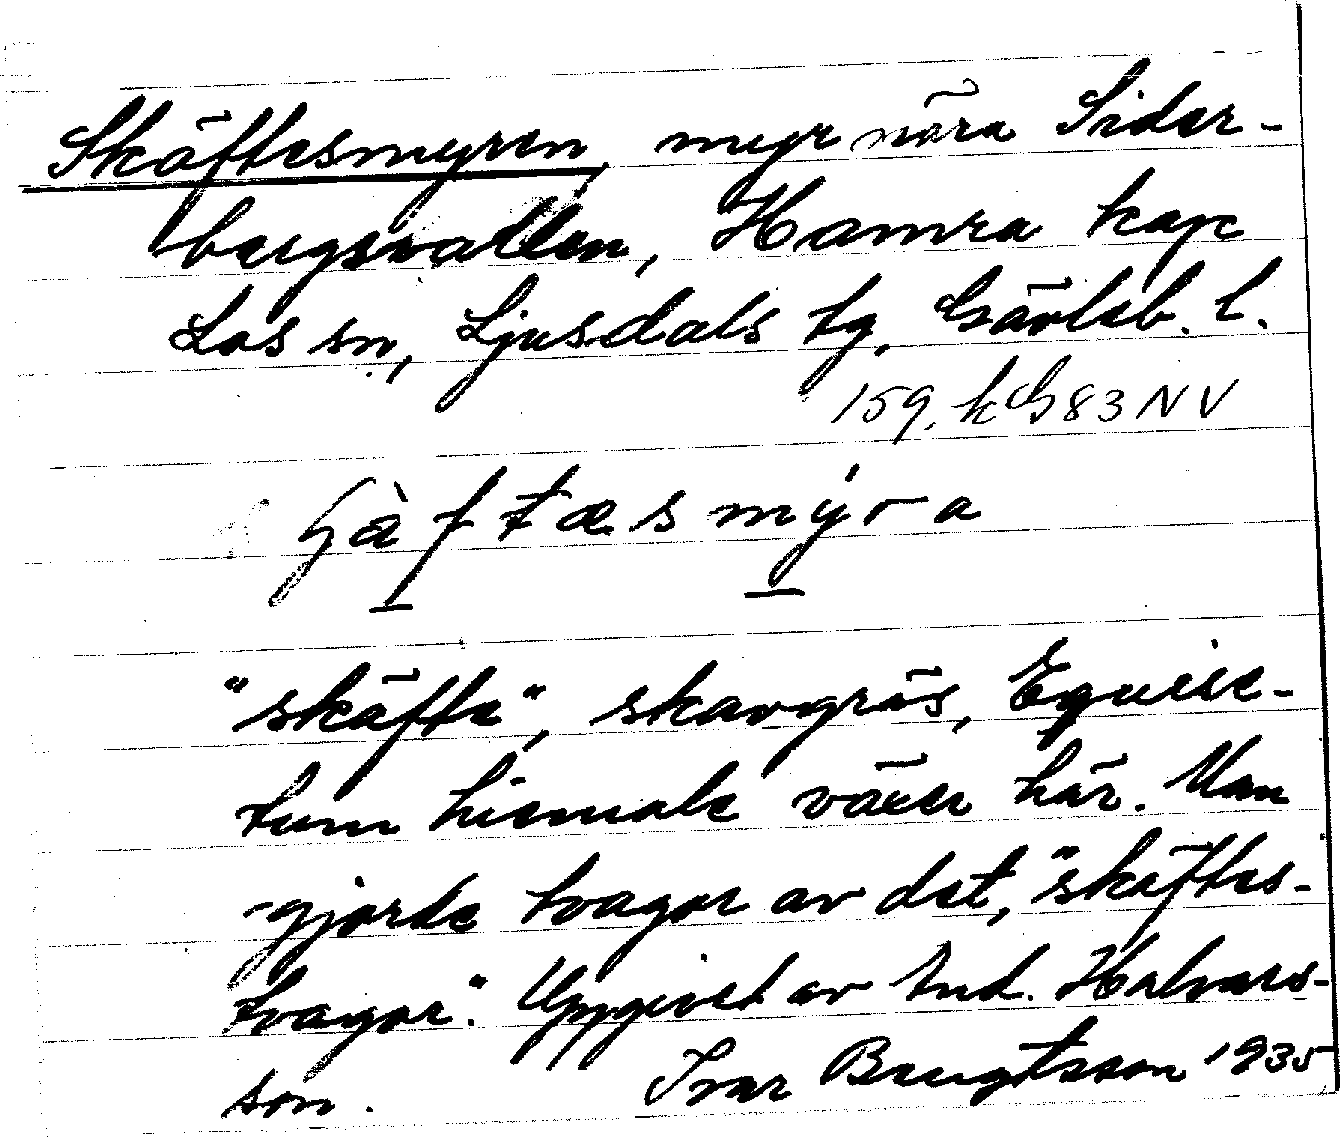 Skäftesmyren, myr nära Sider-
bergsvallen, Hamra kap
Los sn, Ljusdals tg, Gävleb. l.
159. k G 83 NV
ʃàftæsmýra
"skäfte", skavgräs, Equise-
tum hiemale växer här. Man
gjorde tvagor av det, "skäftes-
tvagor". Uppgivet av And. Halvars-
son. Ivar Bengtsson 1935